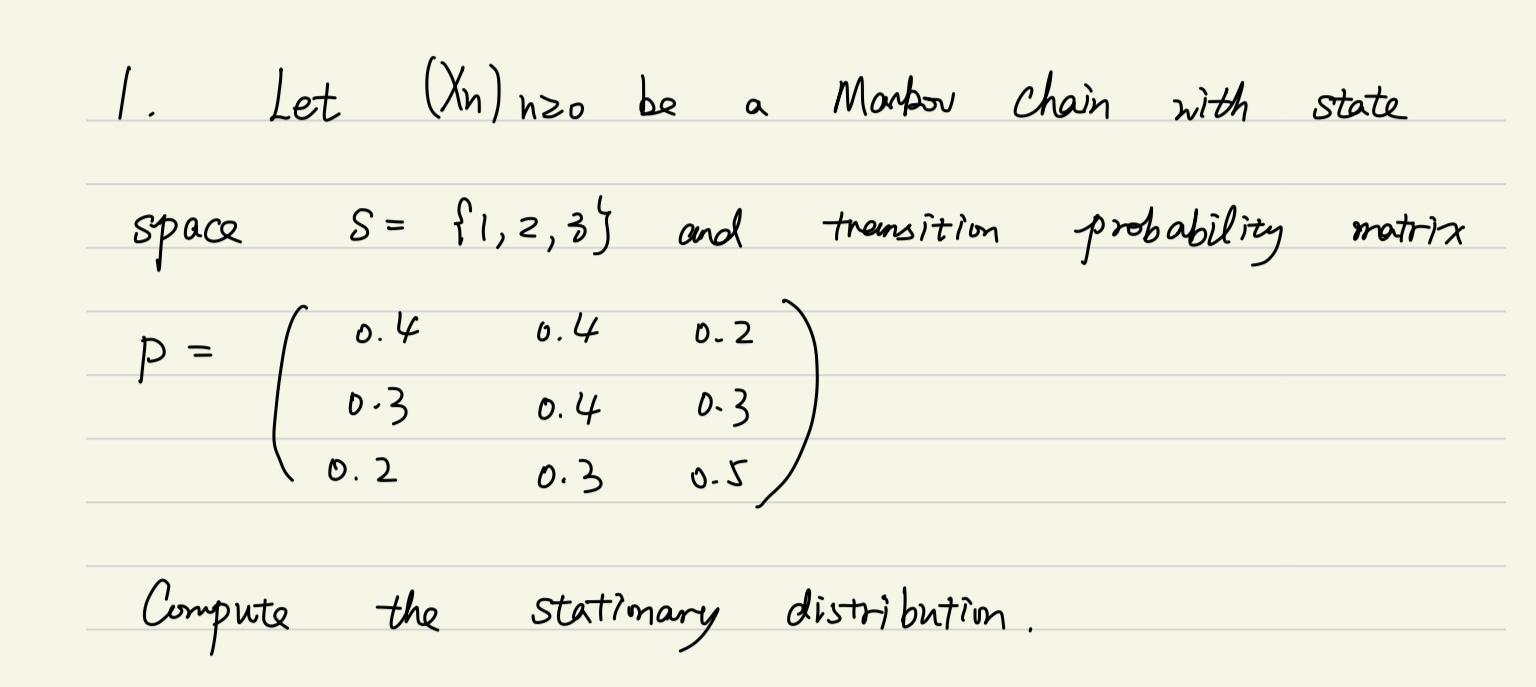 1. Let (Xn) n≥0 be a Markov Chain with state
space S = {1, 2, 3} and transition probability matrix
P = ( 0.4 0.4 0.2
0.3 0.4 0.3
0.2 0.3 0.5 )
Compute the stationary distribution.